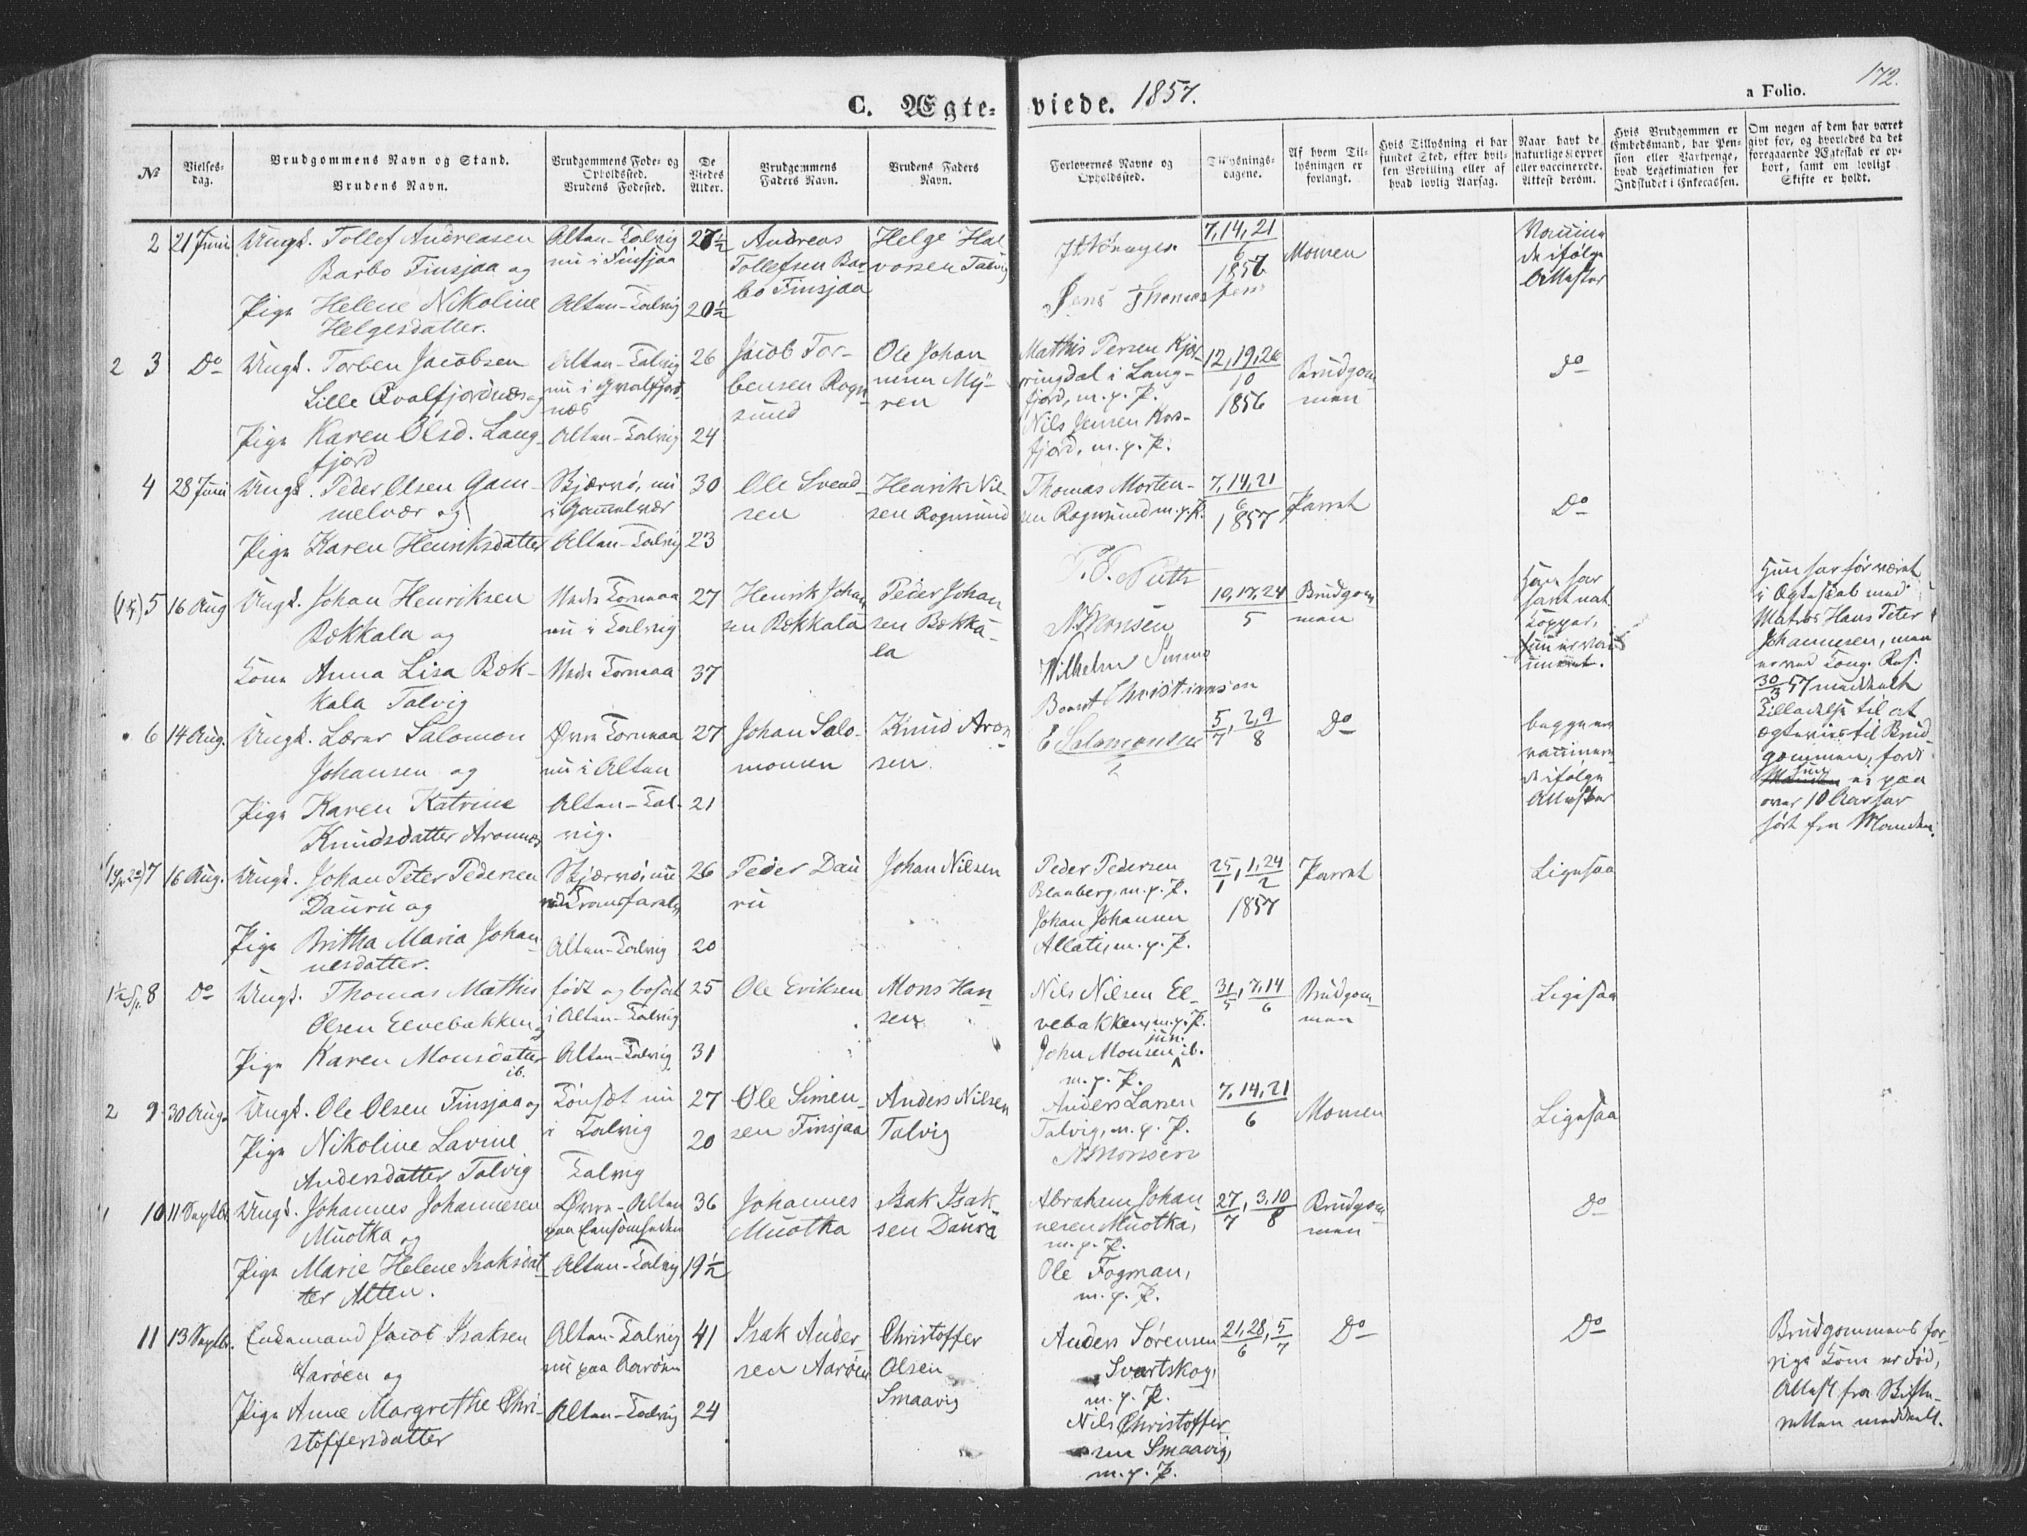 172.
C. Ægte- viede. 1857.
a Folio.
№
Vielses-
dag.
Brudgommens Navn og Stand.
Brudens Navn.
Brudgommens Føde- og
Opholdssted.
Brudens Fødested.
De
Viedes
Alder.
Brudgommens
Faders Navn.
Brudens Faders
Navn.
Forlovernes Navne og
Opholdssted.
Tillysnings-
dagene.
Af hvem Til-
lysningen er
forlangt.
Hvis Tillysning ei har
fundet Sted, efter hvil-
ken Bevilling eller af
hvad lovlig Aarsag.
Naar havt de
naturlige Kopper
eller vaccinerede.
Attest derom.
Hvis Brudgommen er
Embedsmand, har Pen-
sion eller Vartpenge,
hvad Legitimation for
Indskudet i Enkecassen.
Om nogen af dem har været
gift før, og hvorledes da det
foregaaende Ægteskab er op-
hørt, samt om lovligt
Skifte er holdt.
2 21 Juni Ungk. Tollef Andreasen
Barbo Finsjaa og
Pige Helene Nikoline
Helgesdatter.
Alten-Talvig
nu i Finsjaa
Alten-Talvig
27½
20½
Andreas
Tollefsen Bar-
bo Finsjaa
Helge Hal
vorsen Talvig
Jens Thomassen
7, 14, 21
6
1857
Monsen
Vaccine
de ifølge
Attester
2 3 Do Ungk. Torben Jacobsen
Lille Qvalfjordnæs og
Pige Karen Olsd. Lang-
fjord
Alten-Talvig
nu i Qvalfjord
næs
Alten-Talvig
26
24
Jacob Tor-
bensen Rogn
sund
Ole Johan
nesen My-
ren
Mathis Persen Kjer-
ringdal i Lang-
fjord, m. p. P.
Nils Jensen Kors-
fjord, m. p. P.
12, 19, 26
10
1856
Brudgom
men
do
4 28 Juni Ungk. Peder Olsen Gam-
melvær og
Pige Karen Henriksdatter
Skjervø, nu
i Gammelvær
Alten-Talvig
30
23
Ole Svend-
sen
Henrik Nil-
sen Rognsund
Thomas Morten-
sen Rognsund m. p. P.
7, 14, 21
6
1857
Parret
Do
5 16 Aug Ungk. Johan Henriksen
Bækkala og
Kone Anna Lisa Bæk-
kala Talvig
Nedr Torneaa
nu i Talvig
Nedr Torneaa
27
37
Henrik Johan
sen Bækkala
Peder Johan
sen Bækka-
la
N Monsen
10, 17, 24
5
Brudgom
men
Han har
havt nat.
Kopper,
hun er vac
cineret.
Hun har før været
i Ægteskab med
Mathis Hans Peter
Johannesen, men
er ved Kong. Res.
30/3 57 meddeelt
Tilladelse til at
ægtevies til Brud-
gommen, fordi
hun ei paa
over 10 Aar har
hørt fra Manden.
6 14 Aug. Ungk. Lærer Salomon
Johansen og
Pige Karen Katrine
Knudsdatter Aronnes
Øvre Torneaa
nu i Alten
Alten-Tal-
vig.
27
21
Johan Salo-
monsen
Knud Aron
sen.
Wilhelm
Boart Christiansen
E Salomonsen
5/7, 2, 9/8
Do
begge er
vaccinere
de ifølge
Attester
7 16 Aug. Ungk. Johan Peter Pedersen
Dauru og
Pige Britha Maria Johan-
nesdatter.
Skjervø, nu
Alten-Talvig
26
20
Peder Dau
ru
Johan Nilsen
Peder Pedersen
Blaaberg, m. p. P.
Johan Johansen
Allati, m. p. P.
25/1, 1, 24/2
1857
Parret
Ligesaa
8 Do Ungk. Thomas Mathis
Olsen Elvebakken og
Pige Karen Monsdatter
ib.
født og bosat
i Alten-Talvig
Alten-Talvig
25
31
Ole Eriksen
Mons Han-
sen
Nils Nilsen El-
vebakken, m. p. P.
John Monsen jun. ib.
m. p. P.
31/5, 7, 14/6
Brudgom-
men
Ligesaa
2 9 30 Aug. Ungk. Ole Olsen Finsjaa og
Pige Nikoline Lavine
Andersdatter Talvig
Tønsæt nu
i Talvig
Talvig
27
20
Ole Simen-
sen Finsjaa
Anders Nilsen
Talvig
Anders Larsen
Talvig, m. p. P.
N Monsen
7, 14, 21
6
Monsen
Ligesaa
10 11 Septbr. Ungk. Johannes Johannesen
Muotka og
Pige Marie Helene Isaksdat
ter Alten.
Øvre-Alten
Alten-Talvig
36
19½
Johannes
Muotka
Isak Isak
sen Daura
Abraham Johan
nesen Muotka,
m. p. P.
Ole Fogman,
m. p. P.
27/7, 3, 10/8
Brudgom-
men
Do
11 13 Septbr. Enkemand Jacob Isaksen
Aarøen og
Pige Anne Margrethe Chri-
stoffersdatter
Alten-Talvig
nu paa Aarøen
Alten-Talvig
41
24
Isak Ander
sen Aarøen
Christoffer
Olsen
Smaavig
Anders Sørensen
Svartskog,
m. p. P.
Nils Christoffer-
sen Smaavig,
m. p. P.
21, 28/6, 5/7
Do
Do
Brudgommens for-
rige Kone er død,
Attest fra Skifte-
retten meddeelt.